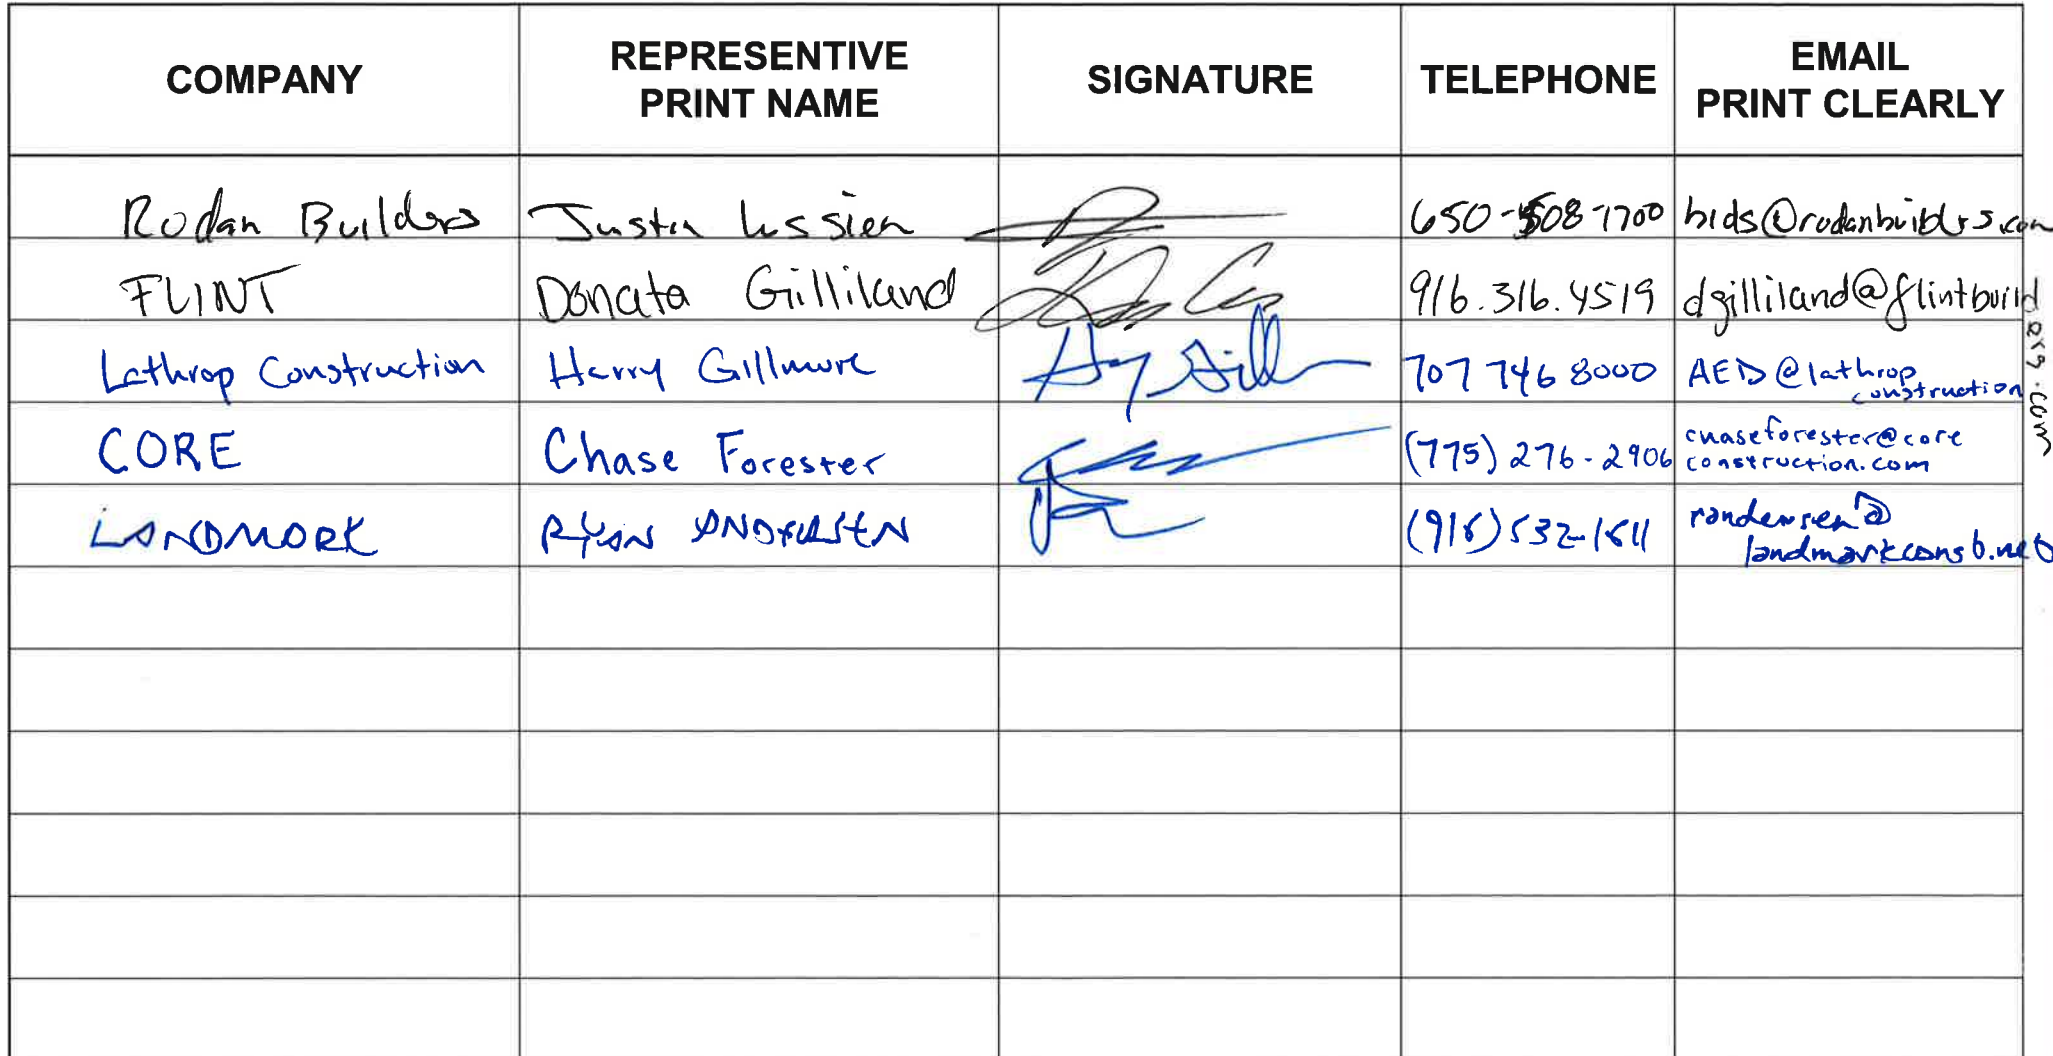 COMPANY
REPRESENTIVE
PRINT NAME
SIGNATURE
TELEPHONE
EMAIL
PRINT CLEARLY
Rodan Builders Justin Lussien 650-508-1700 bids@rodanbuilders.com
FLINT Donata Gilliland 916.316.4519 dgilliland@flintbuilders.com
Lathrop Construction Harry Gillmore 707 746 8000 AED@lathrop
construction
CORE Chase Forester (775) 276-2906 chaseforester@core
construction.com
LANDMARK RYAN ANDERSEN randersen@
landmarkconst.net